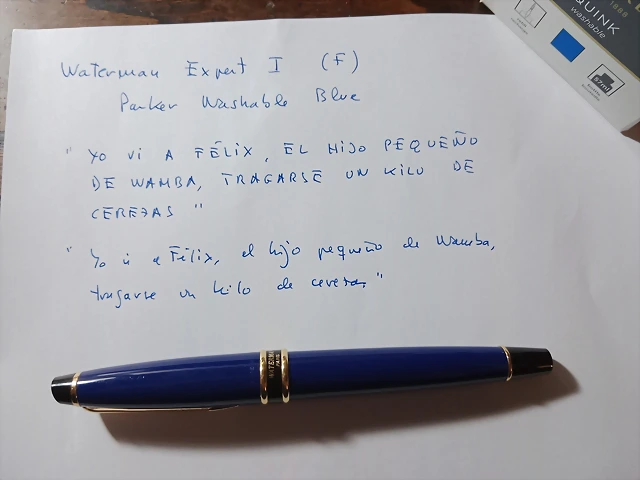 QUINK
washable
Waterman Expert I (F)
Parker Washable Blue
"Yo vi a FÉLIX, EL HIJO PEQUEÑO
DE WAMBA, TRAGARSE UN KILO DE
CEREZAS"
"Yo vi a Félix, el hijo pequeño de Wamba,
tragarse un kilo de cerezas"
WATERMAN
PARIS